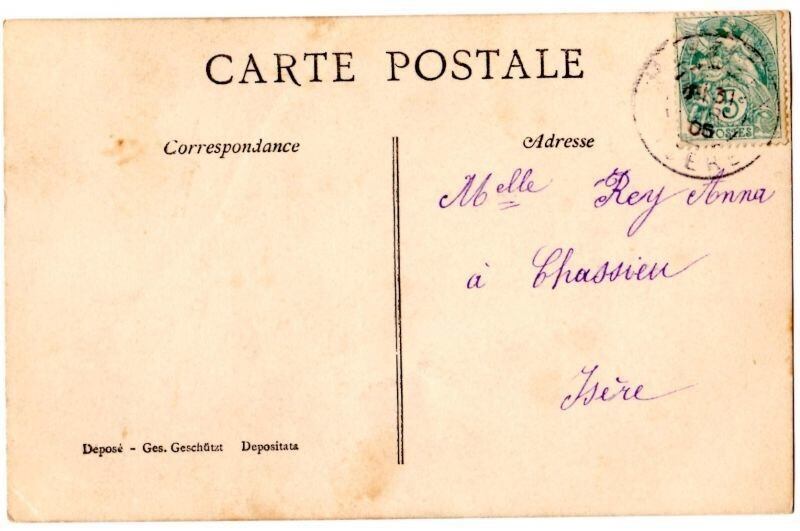 CARTE POSTALE
Correspondance
Adresse
Melle Rey Anna
à Chassieu
Isère
Deposé - Ges. Geschützt Depositata
5c
POSTES
05